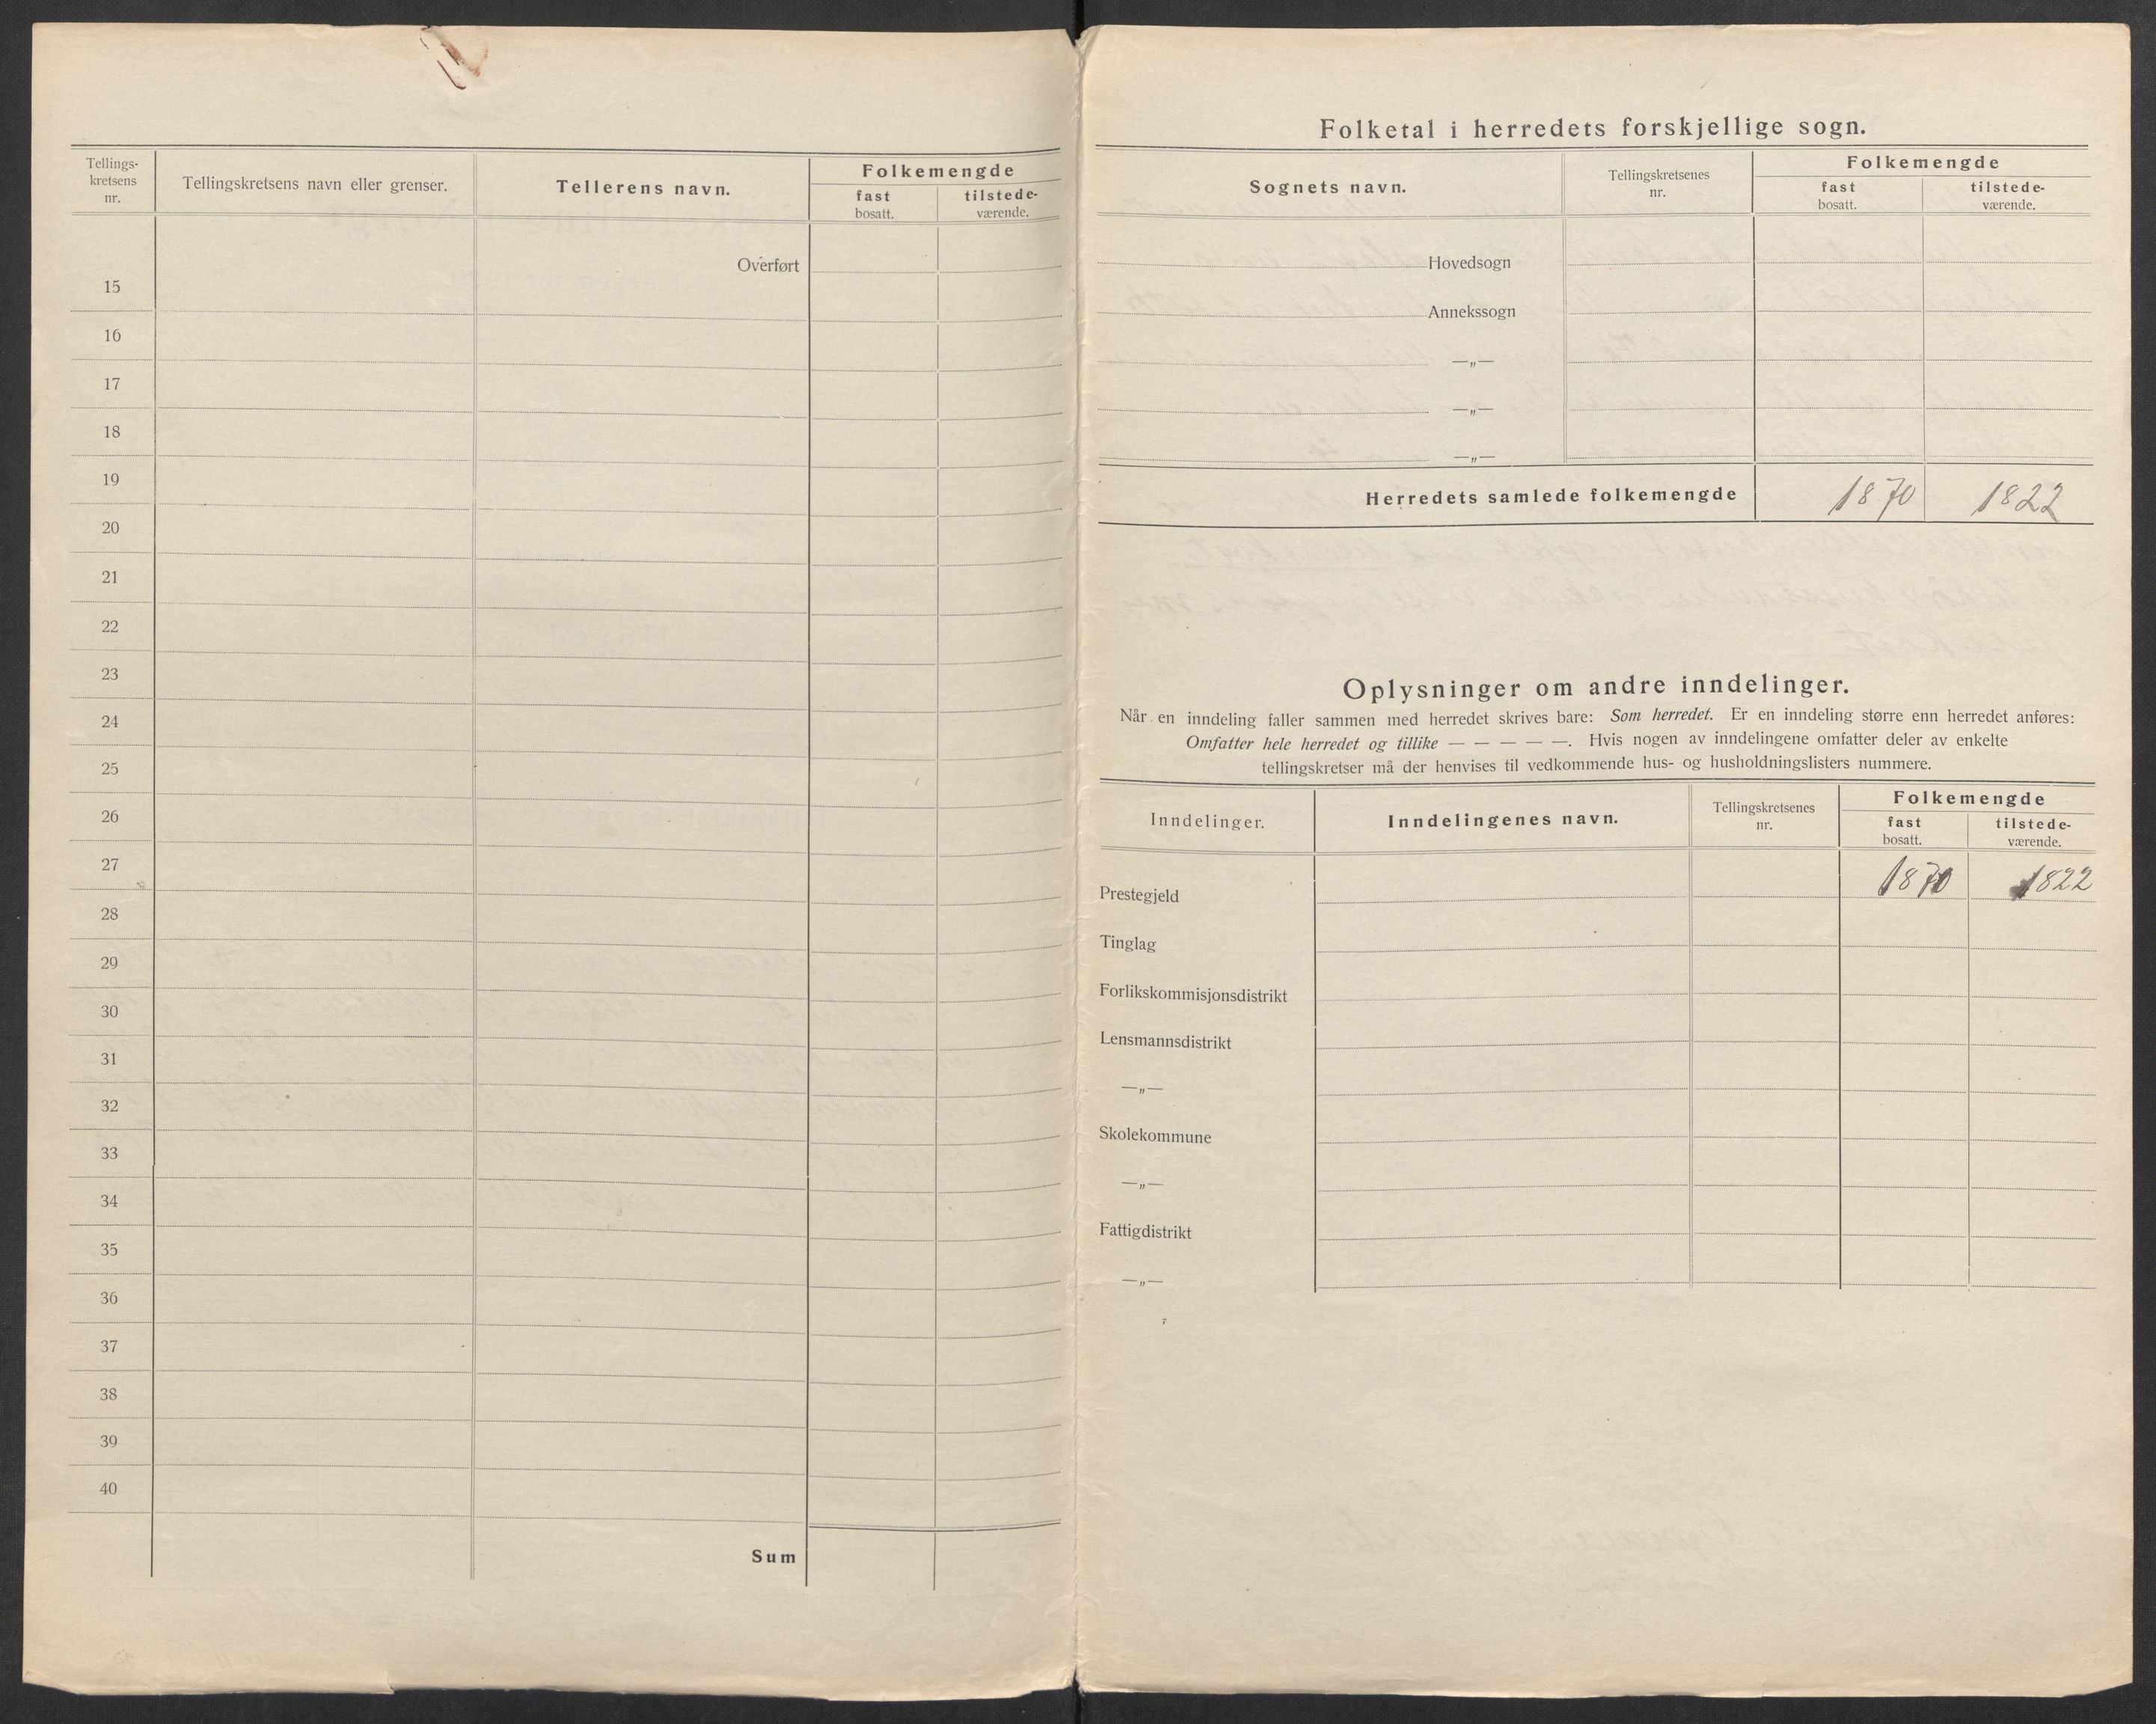 Tellings-
kretsens
nr.
Tellingskretsens navn eller grenser.
Tellerens navn.
Folkemengde
fast
bosatt.
tilstede-
værende.
Overført
15
16
17
18
19
20
21
22
23
24
25
26
27
28
29
30
31
32
33
34
35
36
37
38
39
40
Sum
Folketal i herredets forskjellige sogn.
Sognets navn.
Tellingskretsenes
nr.
Folkemengde
fast
bosatt.
tilstede-
værende.
Hovedsogn
Annekssogn
—„—
—„—
—„—
Herredets samlede folkemengde 1870 1822
Oplysninger om andre inndelinger.
Når en inndeling faller sammen med herredet skrives bare: Som herredet. Er en inndeling større enn herredet anføres:
Omfatter hele herredet og tillike — — — — —. Hvis nogen av inndelingene omfatter deler av enkelte
tellingskretser må der henvises til vedkommende hus- og husholdningslisters nummere.
Inndelinger.
Inndelingenes navn.
Tellingskretsenes
nr.
Folkemengde
fast
bosatt.
tilstede-
værende.
Prestegjeld 1870 1822
Tinglag
Forlikskommisjonsdistrikt
Lensmannsdistrikt
—„—
Skolekommune
—„—
Fattigdistrikt
—„—